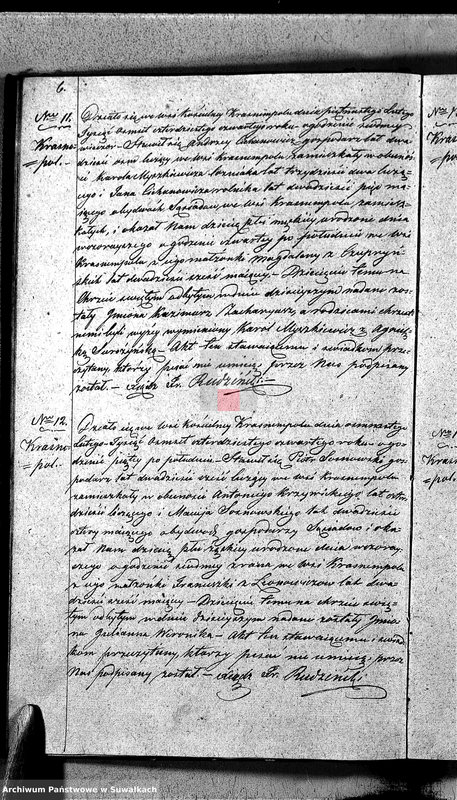 6.
Nro 11.
Krasno=
=pol.-
Działo się we wsi kościelney Krasnempolu dnia piętnastego Lutego
Tysiąc Osmset czterdziestego czwartego roku o godzinie siódmey
wieczor. Stawił się Andrzey Cichanowicz gospodarz lat dwa
dzieścia osm liczący we wsi Krasnempolu zamieszkały w obecno
ści Karola Myszkiewicza lat trzydzieści dwa liczą
cego i Jana Cichanowicza rolnika lat dwadzieścia pięć ma
jącego obydwóch Sąsiadów we wsi Krasnempolu zamiesz
kałych, i okazał Nam dziecię płci męzkiey urodzone dnia
wczorayszego o godzinie czwartey po południu we wsi
Krasnempolu z jego małżonki Magdaleny z
skich lat dwadzieścia sześć maiącey. - Dziecięciu temu na
Chrzcie świętym odbytym w dniu dzisieyszym nadane zos
tały Imiona Kazimierz Zacharyasz, a rodzicami chrzest
nemi byli wyżey wymieniony Karol Myszkiewicz z Agniesz
ką - Akt ten stawaiącemu i świadkom prze
czytany, którzy pisać nie umieią, przez Nas podpisany
został. - Xiądz Fr. Rudzeński.
Nro 12.
Krasno=
=pol.-
Działo się we wsi kościelney Krasnempolu dnia osmnastego
Lutego Tysiąc Osmset czterdziestego czwartego roku o go
dzinie piątey po południu. Stawił się Piotr Sosnowski gos
podarz lat dwadzieścia sześć liczący we wsi Krasnempolu
zamieszkały w obecności Antoniego Krzywickiego lat czter
dzieści liczącego i Macieja Sosnowskiego lat dwadzieścia
cztery maiącego obydwóch gospodarzy Sąsiadów i oka
zał Nam dziecię płci żeńskiey urodzone dnia wczoray
szego o godzinie siódmey z rana we wsi Krasnempolu
z jego małżonki Franciszki z Leonowiczów lat dwa
dzieścia sześć maiącey. - Dziecięciu temu na chrzcie świę
tym odbytym w dniu dzisieyszym nadane zostały Imio
na Julianna Weronika. - Akt ten stawaiącemu i świad
kom przeczytany, którzy pisać nie umieią, przez
Nas podpisany został. - Xiądz Fr. Rudzeński
Nro 1
Krasno
=pol
Nro 1
Krasno
=pol
Archiwum Państwowe w Suwałkach